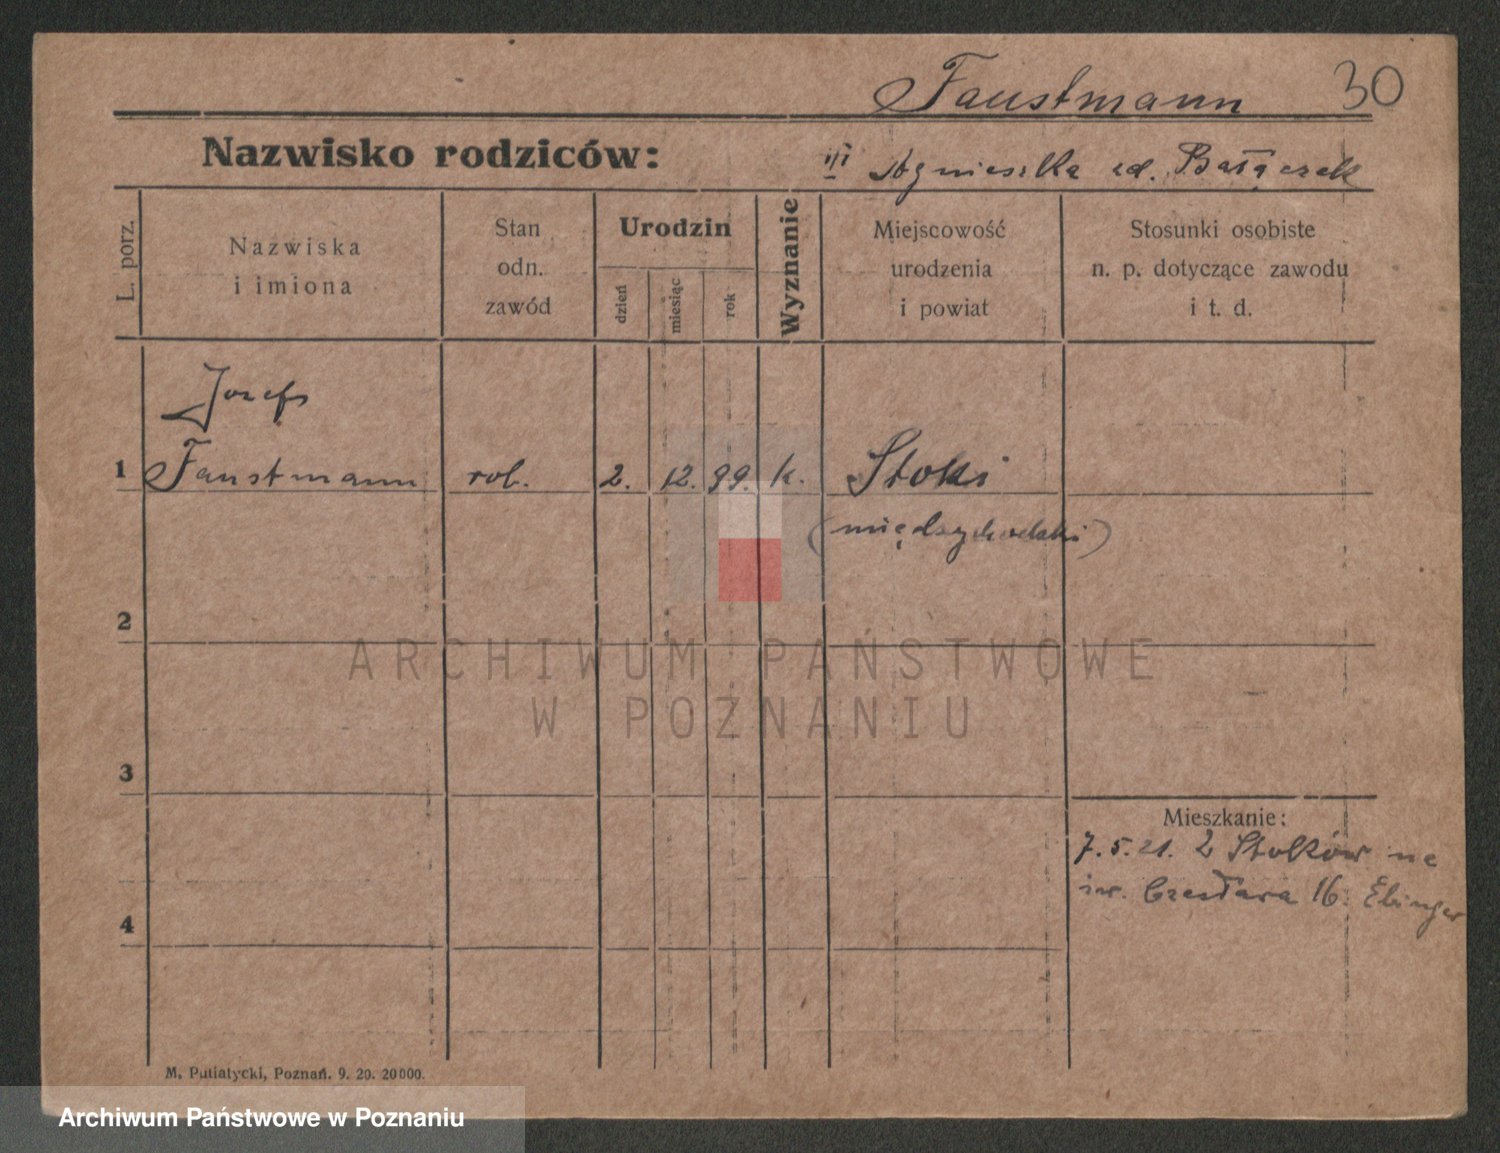 Faustmann 30
Nazwisko rodziców:
Agnieszka zd. Bartączak
L. porz.
Nazwiska
i imiona
Stan
odn.
zawód
Urodzin
dzień
miesiąc
rok
Wyznanie
Miejscowość
urodzenia
i powiat
Stosunki osobiste
n. p. dotyczące zawodu
i t. d.
Jozef
1 Faustmann rob. 2. 12. 99. k. Stoki
(międzychodzki)
2
ARCHIWUM PAŃSTWOWE
W POZNANIU
3
Mieszkanie:
7.5.21. z Stoków na
św. Czesława 16. Ebinger
4
M. Putiatycki, Poznań. 9. 20. 20000.
Archiwum Państwowe w Poznaniu